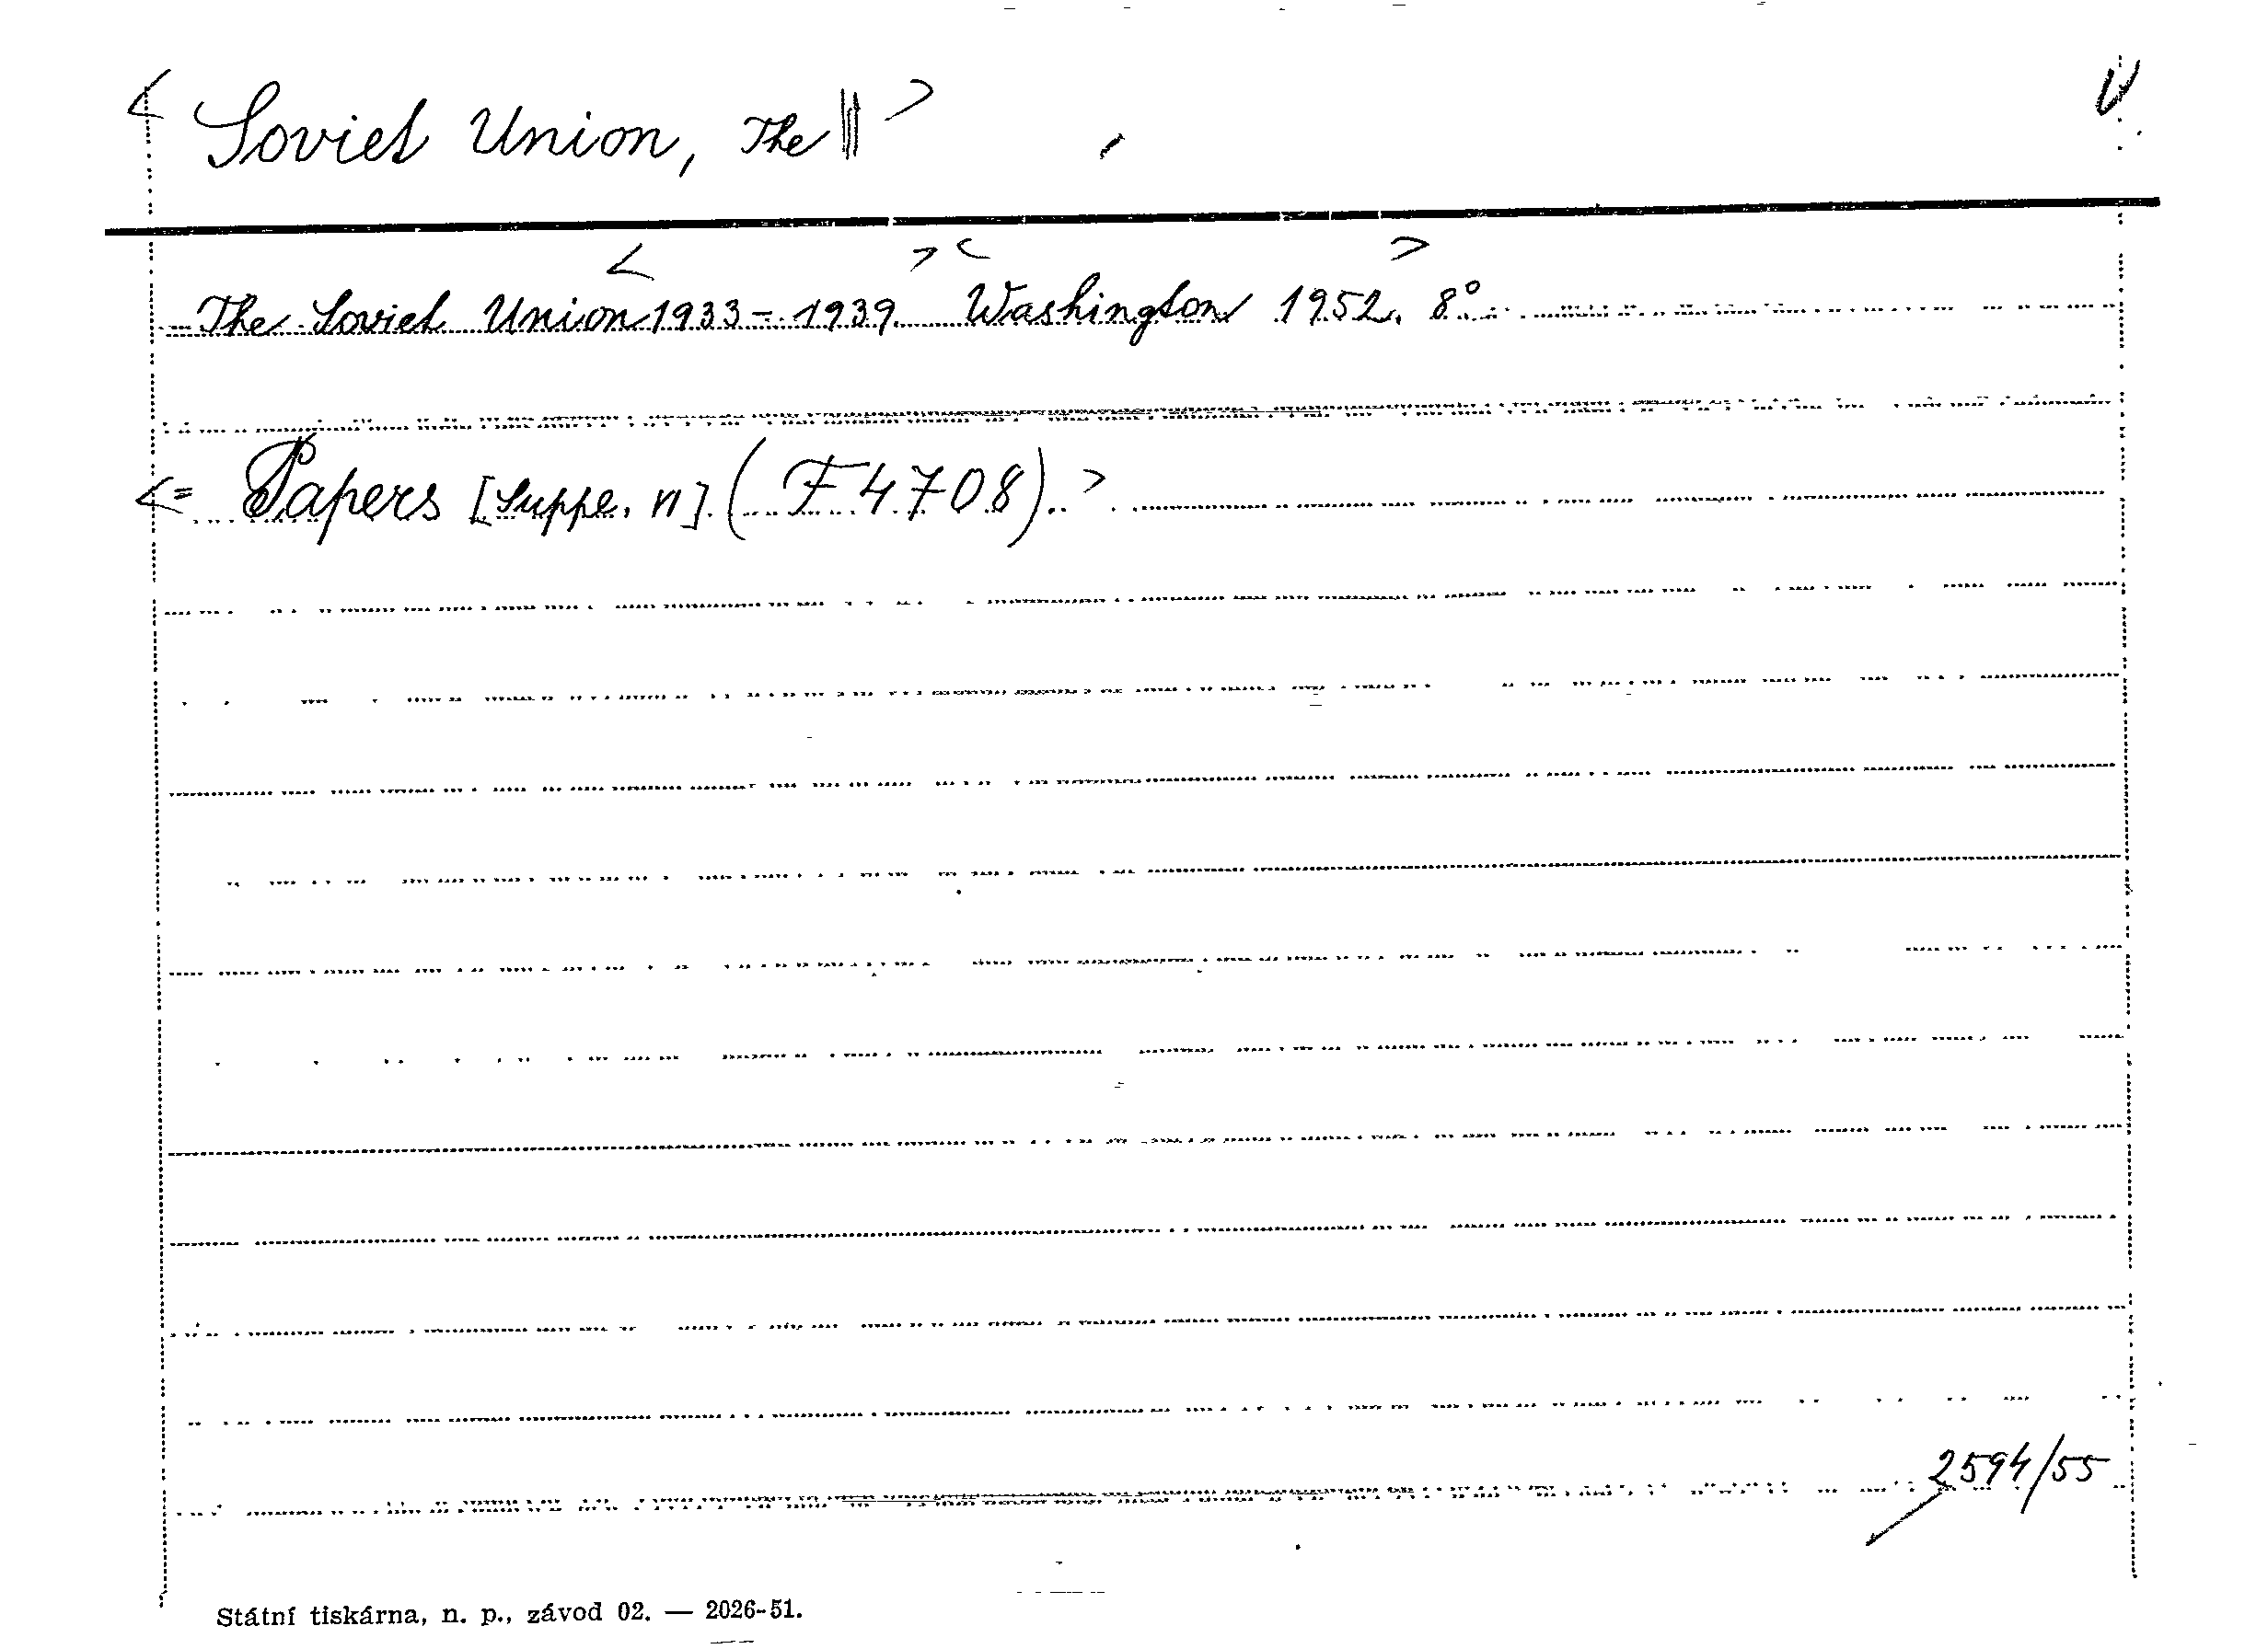 < Soviet Union, The || >
The Soviet Union 1933 – 1939. Washington 1952. 8°.
<= Papers [Suppe. VI] (F 4708). >
2594/55
Státní tiskárna, n. p., závod 02. — 2026-51.